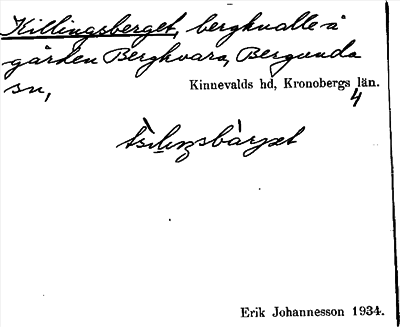 Killingsberget, bergkulle å
gården Bergkvara, Bergunda
sn,
Kinnevalds hd, Kronobergs län.
4
Erik Johannesson 1934.